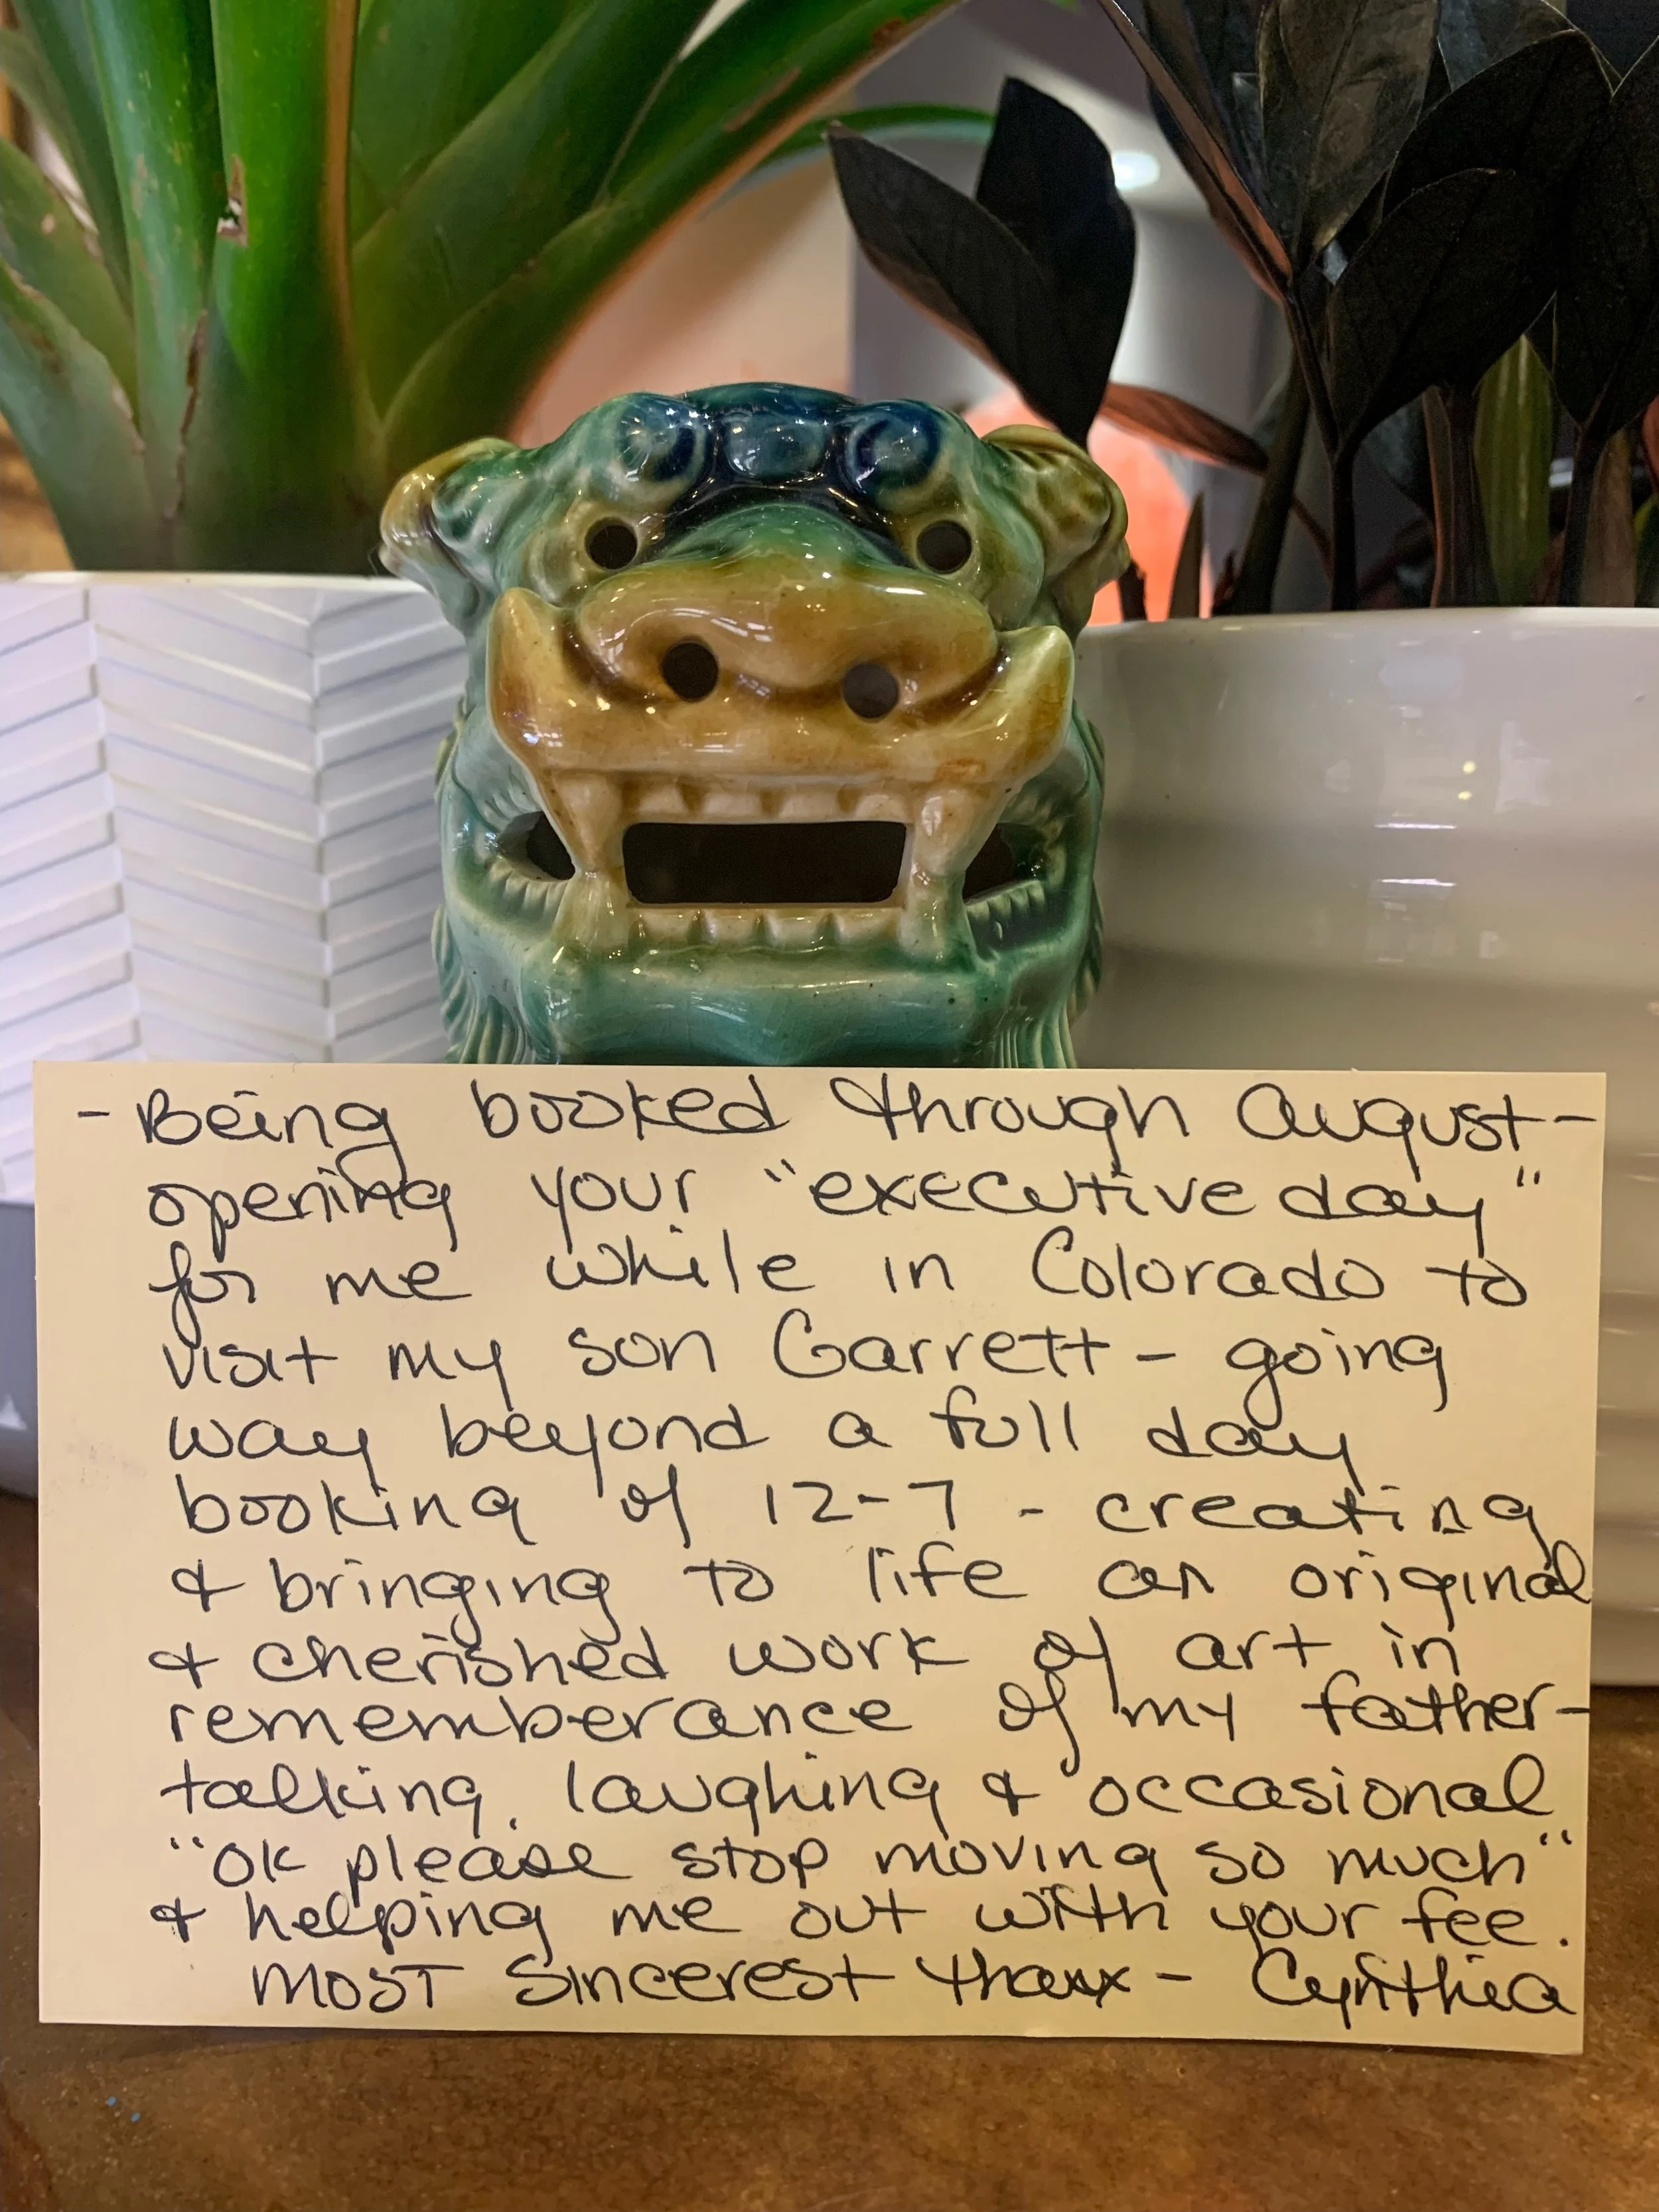 - Being booked through August -
opening your "executive day"
for me while in Colorado to
visit my son Garrett - going
way beyond a full day
booking of 12-7 - creating
& bringing to life an original
& cherished work of art in
rememberance of my father -
talking, laughing & occasional
"OK please stop moving so much"
& helping me out with your fee.
MOST Sincerest thanx - Cynthia